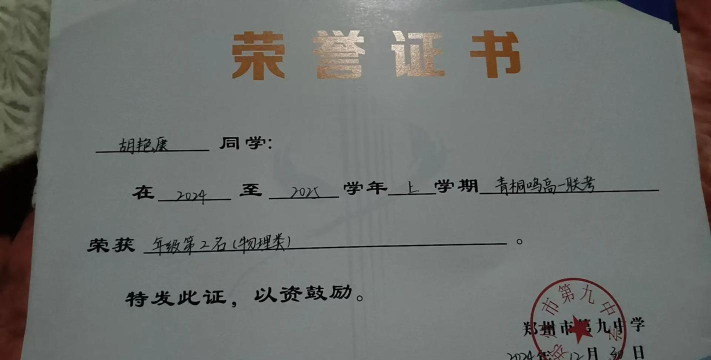 荣誉证书
胡艳康 同学:
在 2024 至 2025 学年 上 学期 青桐鸣高一联考
荣获 年级第2名(物理类)。
特发此证，以资鼓励。
郑州市第九中学
2024年12月30日